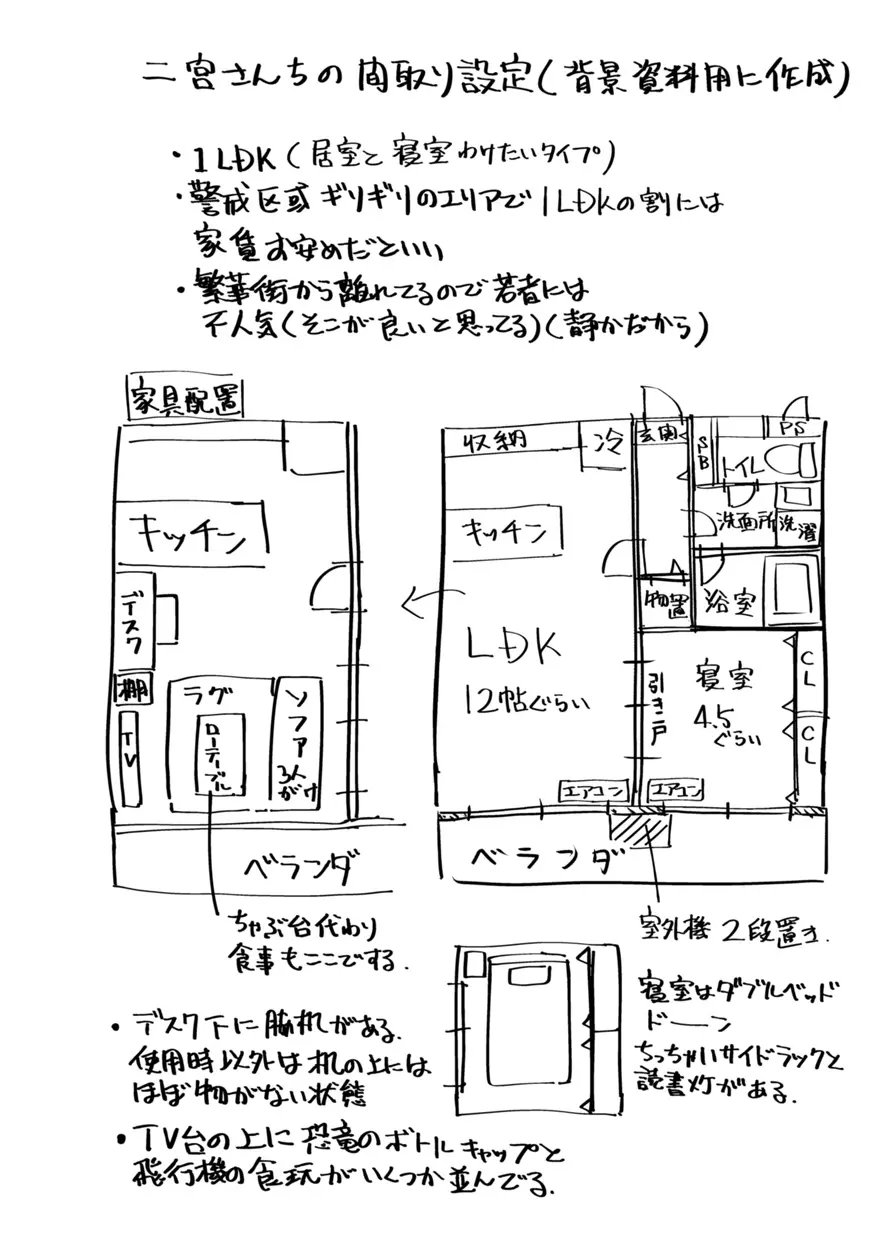 二宮さんちの間取り設定(背景資料用に作成)
・1LDK(居室と寝室わけたいタイプ)
・警戒区域ギリギリのエリアで1LDKの割には
家賃お安めだといい
・繁華街から離れてるので若者には
不人気(そこが良いと思ってる)(静かだから)
家具配置
キッチン
デスク
棚
TV
ラグ
ローテーブル
ソファ
3人がけ
ベランダ
ちゃぶ台代わり
食事もここでする.
収納
冷
玄関
SB
トイレ
PS
キッチン
洗面所
洗濯
物置
浴室
LDK
12帖ぐらい
引き戸
寝室
4.5
ぐらい
CL
CL
エアコン
エアコン
ベランダ
室外機2段置き.
寝室はダブルベッド
ドーーン
ちっちゃいサイドラックと
読書灯がある.
・デスク下に脇机がある.
使用時以外は机の上には
ほぼ物がない状態
・TV台の上に恐竜のボトルキャップと
飛行機の食玩がいくつか並んでる.